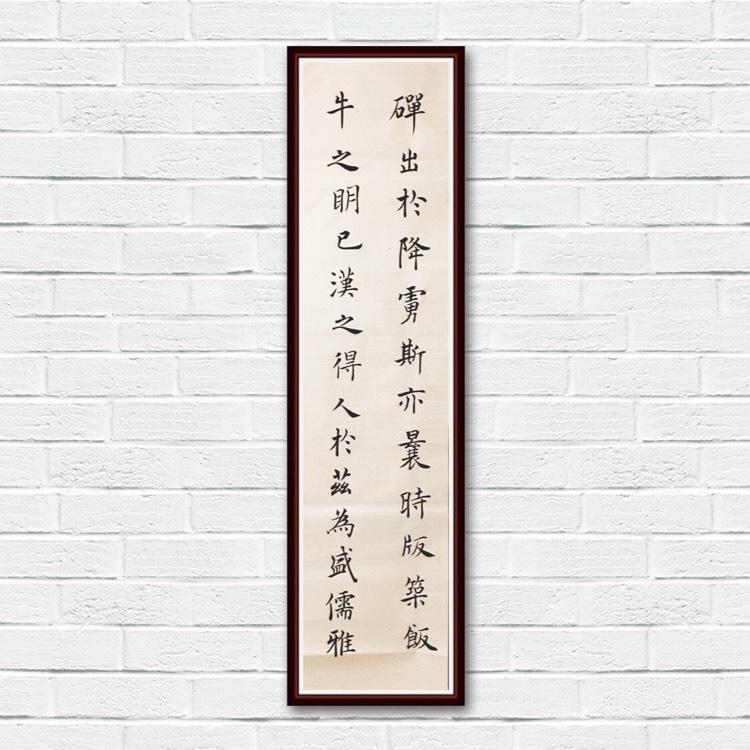 磾出於降虜斯亦曩時版築飯
牛之眀已漢之得人於茲為盛儒雅